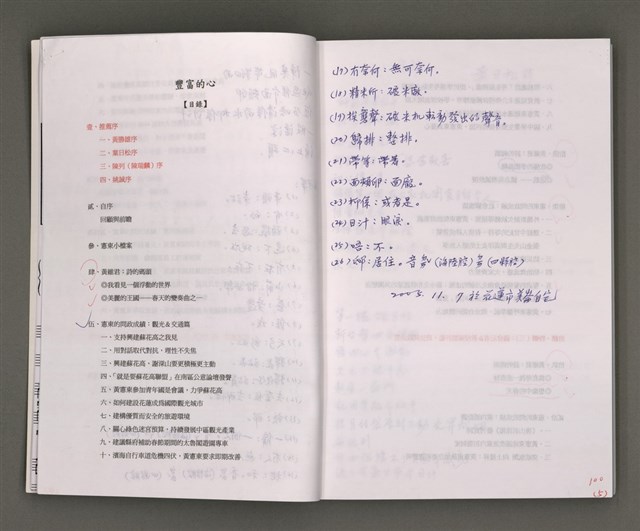 豐富的心
【目錄】
壹、推薦序
一、黃勝雄序
二、葉日松序
三、陳列(陳瑞麟)序
四、姚誠序
貳、自序
回顧與前瞻
參、憲東小檔案
肆、黃維君：詩的兩扇
◎我看見一個浮動的世界
◎美麗的王國——春天的變奏曲之一
伍、憲東的問政成績：觀光&交通篇
一、支持興建蘇花高之我見
二、用對話取代對抗，理性不失焦
三、興建蘇花高，謝深山要更積極更主動
四、「就是要蘇花高聯盟」在南區公害論壇發聲
五、黃憲東參加青年國是會議，力爭蘇花高
六、如何建設花蓮成為國際觀光城市
七、建構優質而安全的旅遊環境
八、關心綠色迷宮預算，持續發展中區觀光產業
九、建議縣府補助春節期間的太魯閣遊園專車
十、濱海自行車道危機四伏，黃憲東要求即期改善
(17)冇奈何：無可奈何。
(18)精米所：碾米廠。
(19)碾米机車動發出的聲音。
(20)歸排：整排。
(21)帶等：帶著。
(22)面頰卵：面龐。
(23)抑係：或者是。
(24)目汁：眼淚。
(25)唔：不。
(26)居住。音(海陸腔)(四縣腔)
2005. 11. 7 於花蓮市美崙自宅
100
(5)